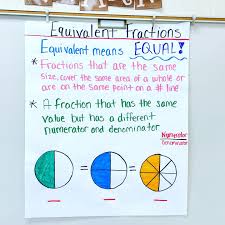 Equivalent Fractions
Equivalent means EQUAL!
* Fractions that are the same
size, cover the same area of a whole or
are on the same point on a # line
* A fraction that has the same
value but has a different
numerator and denominator
Numerator
Denominator
= =